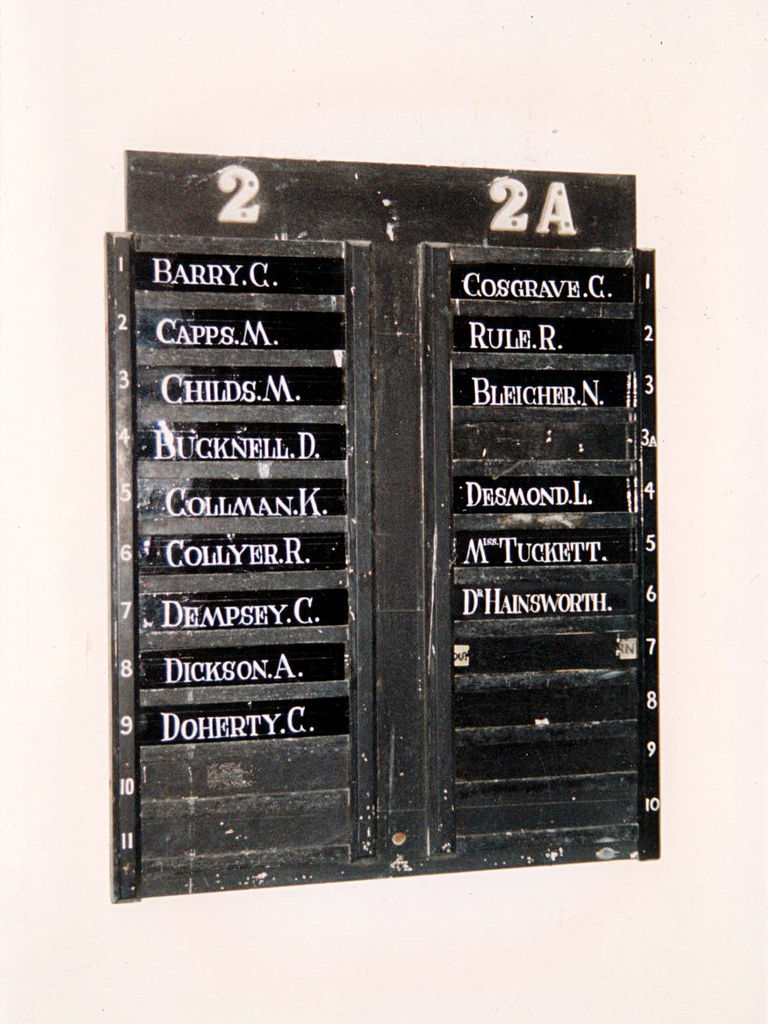 2
1 BARRY.C.
2 CAPPS.M.
3 CHILDS.M.
4 BUCKNELL.D.
5 COLLMAN.K.
6 COLLYER.R.
7 DEMPSEY.C.
8 DICKSON.A.
9 DOHERTY.C.
10
11
2A
COSGRAVE.C. 1
RULE.R. 2
BLEICHER.N. 3
3A
DESMOND.L. 4
MISS. TUCKETT. 5
DR HAINSWORTH. 6
OUT IN 7
8
9
10